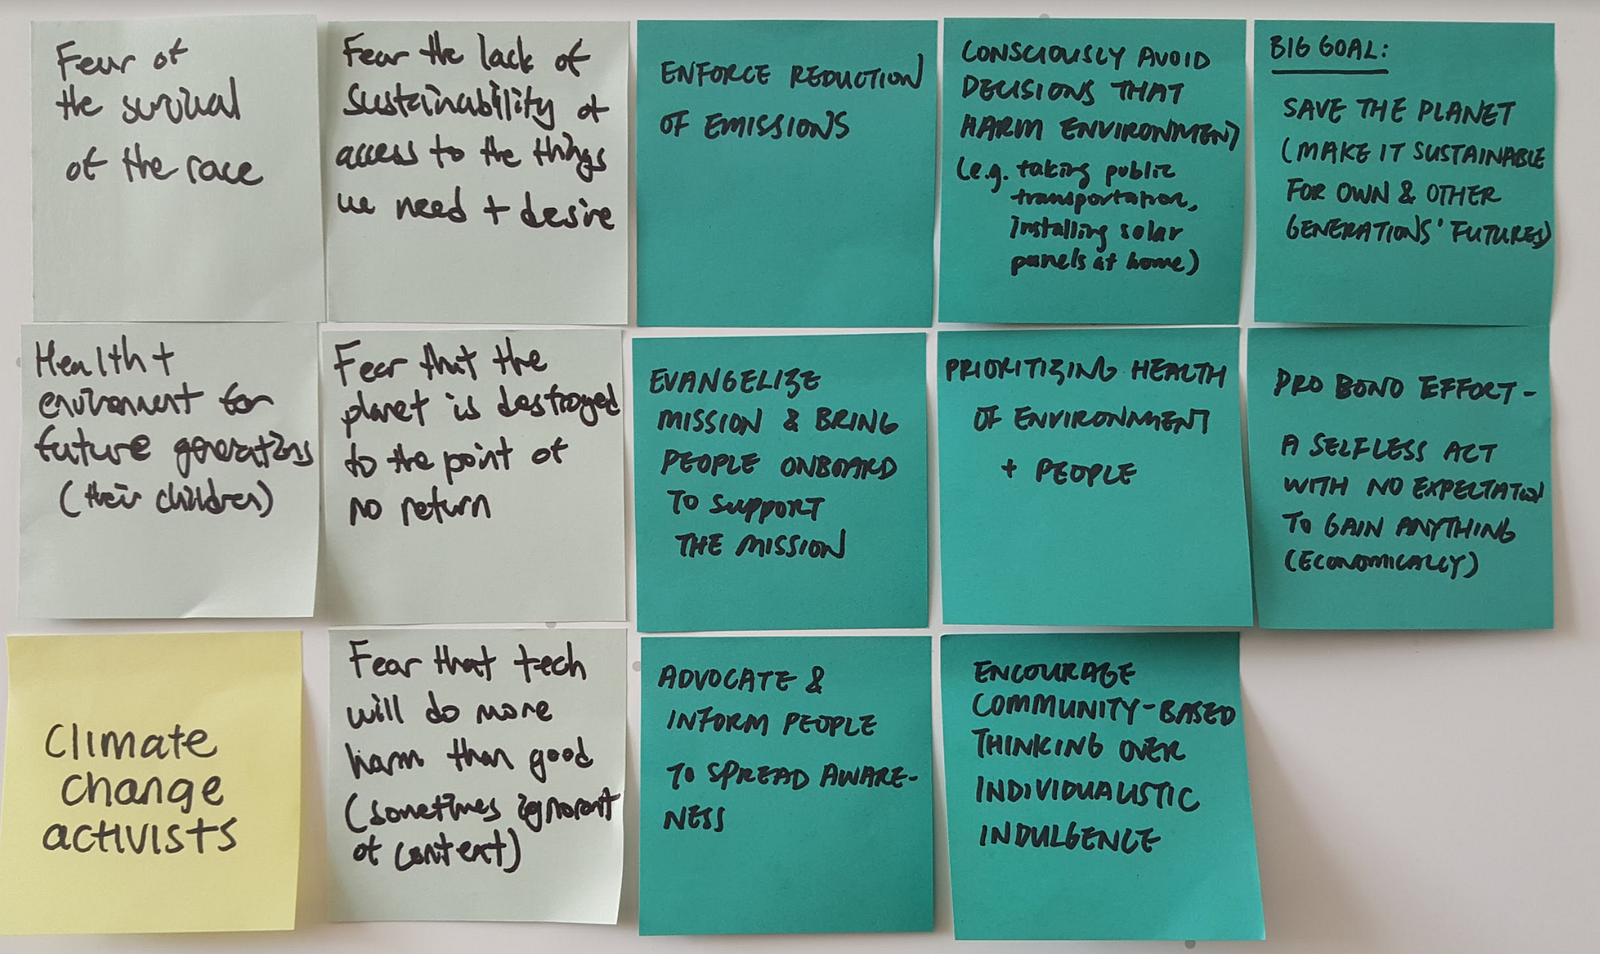 Fear of
the survival
of the race
Fear the lack of
sustainability of
access to the things
we need + desire
ENFORCE REDUCTION
OF EMISSIONS
CONSCIOUSLY AVOID
DECISIONS THAT
HARM ENVIRONMENT
(e.g. taking public
transportation,
installing solar
panels at home)
BIG GOAL:
SAVE THE PLANET
(MAKE IT SUSTAINABLE
FOR OWN & OTHER
GENERATIONS' FUTURES)
Health +
environment for
future generations
(their children)
Fear that the
planet is destroyed
to the point of
no return
EVANGELIZE
MISSION & BRING
PEOPLE ONBOARD
TO SUPPORT
THE MISSION
PRIORITIZING HEALTH
OF ENVIRONMENT
+ PEOPLE
PRO BONO EFFORT-
A SELFLESS ACT
WITH NO EXPECTATION
TO GAIN ANYTHING
(ECONOMICALLY)
Climate
change
activists
Fear that tech
will do more
harm than good
(sometimes ignorant
of context)
ADVOCATE &
INFORM PEOPLE
TO SPREAD AWARE-
NESS
ENCOURAGE
COMMUNITY-BASED
THINKING OVER
INDIVIDUALISTIC
INDULGENCE